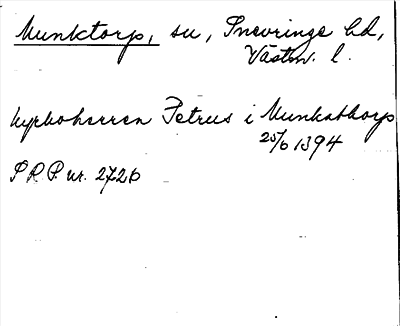 Munktorp, sn, Snevringe hd,
Västm. l.
kyrkoherren Petrus i Munkathorp
25/6 1394
S R P nr. 2726